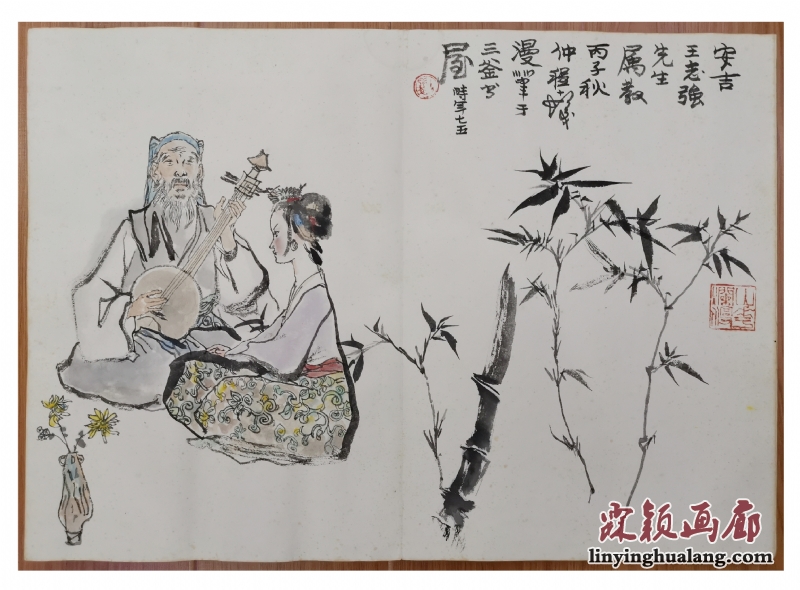 安吉
王志強
先生
属教
丙子秋
仲程峩
漫筆于
三釜書
屋
時年七五
霖颖画廊
linyinghualang.com